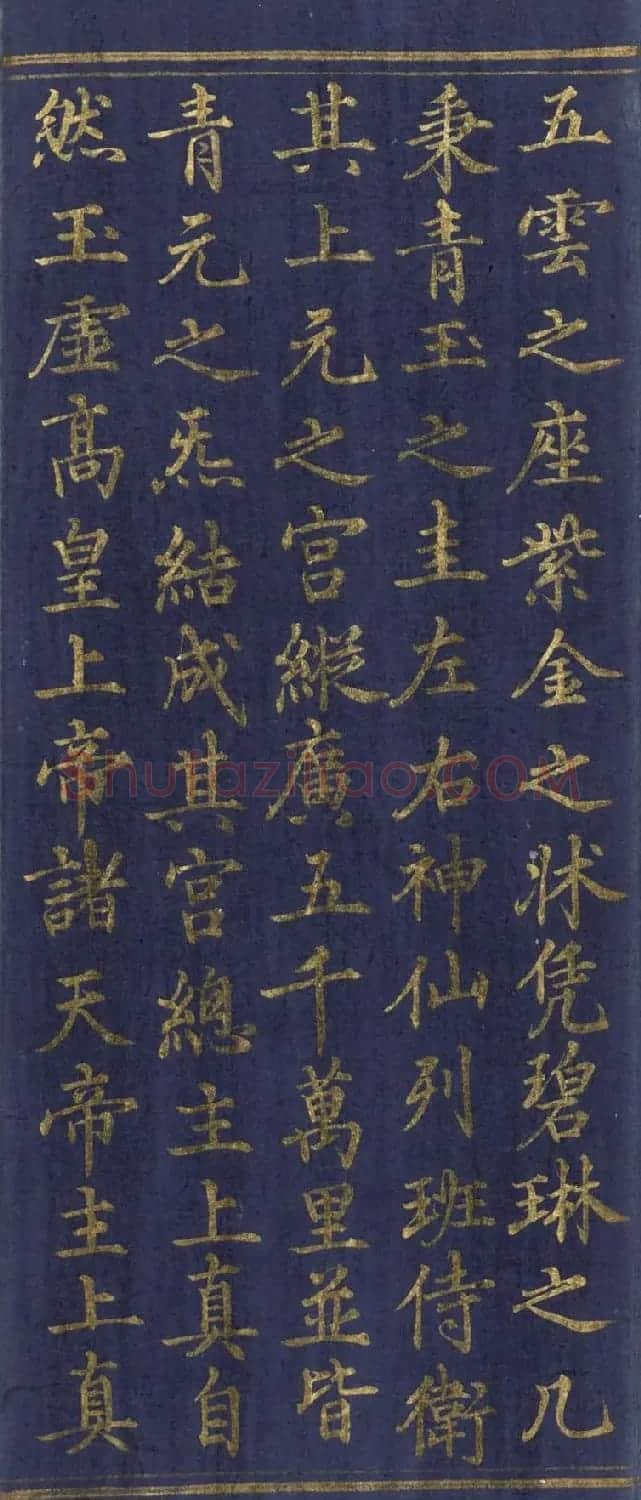 五雲之座紫金之牀凭碧琳之几
秉青玉之圭左右神仙列班侍衛
其上元之宮縱廣五千萬里並皆
青元之炁結成其宮總主上真自
然玉虛髙皇上帝諸天帝主上真
Shufaziliao.COM